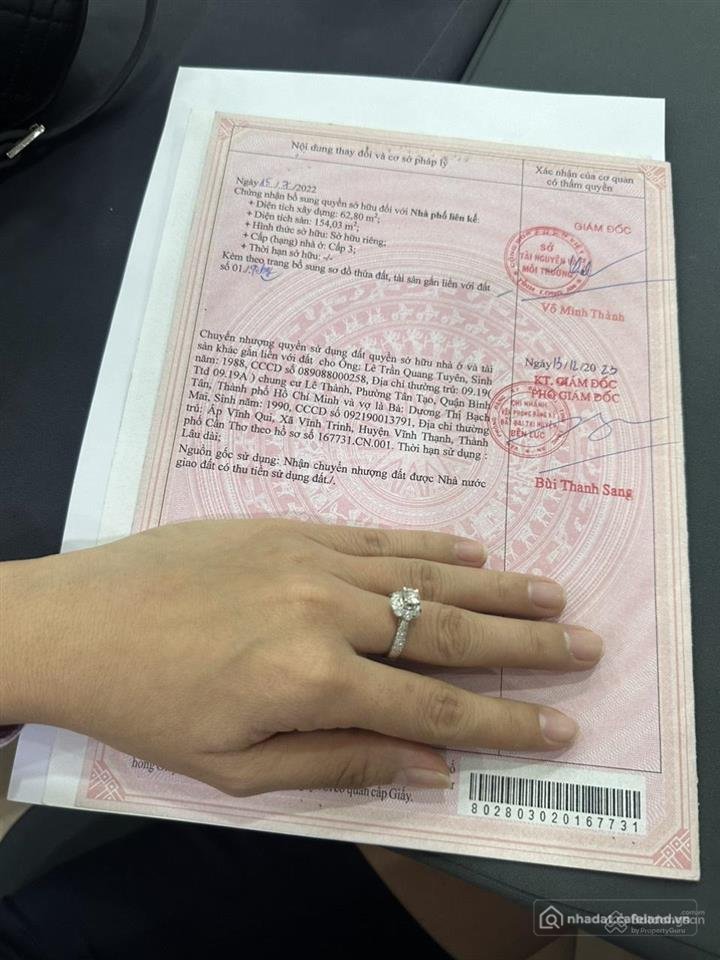 Nội dung thay đổi và cơ sở pháp lý
Xác nhận của cơ quan
có thẩm quyền
Ngày 15/7/2022
Chứng nhận bổ sung quyền sở hữu đối với Nhà phố liên kế:
+ Diện tích xây dựng: 62,80 m²;
+ Diện tích sàn: 154,03 m²;
+ Hình thức sở hữu: Sở hữu riêng;
+ Cấp (hạng) nhà ở: Cấp 3;
+ Thời hạn sở hữu: -/-
Kèm theo trang bổ sung sơ đồ thửa đất, tài sản gắn liền với đất
số 01/.
GIÁM ĐỐC
SỞ
TÀI NGUYÊN VÀ
MÔI TRƯỜNG
Võ Minh Thành
Chuyển nhượng quyền sử dụng đất quyền sở hữu nhà ở và tài
sản khác gắn liền với đất cho Ông: Lê Trần Quang Tuyên, Sinh
năm: 1988, CCCD số 089088000258, Địa chỉ thường trú: 09.19(
Ttd 09.19A ) chung cư Lê Thành, Phường Tân Tạo, Quận Bình
Tân, Thành phố Hồ Chí Minh và vợ là Bà: Dương Thị Bạch
Mai, Sinh năm: 1990, CCCD số 092190013791, Địa chỉ thường
trú: Ấp Vĩnh Qui, Xã Vĩnh Trinh, Huyện Vĩnh Thạnh, Thành
phố Cần Thơ theo hồ sơ số 167731.CN.001. Thời hạn sử dụng :
Lâu dài;
Nguồn gốc sử dụng: Nhận chuyển nhượng đất được Nhà nước
giao đất có thu tiền sử dụng đất./.
Ngày 13/12/2023
KT. GIÁM ĐỐC
PHÓ GIÁM ĐỐC
CHI NHÁNH
VĂN PHÒNG ĐĂNG KÝ
ĐẤT ĐAI TẠI HUYỆN
BẾN LỨC
Bùi Thanh Sang
quan cấp Giấy.
802803020167731
nhadat.cafeland.vn
by PropertyGuru